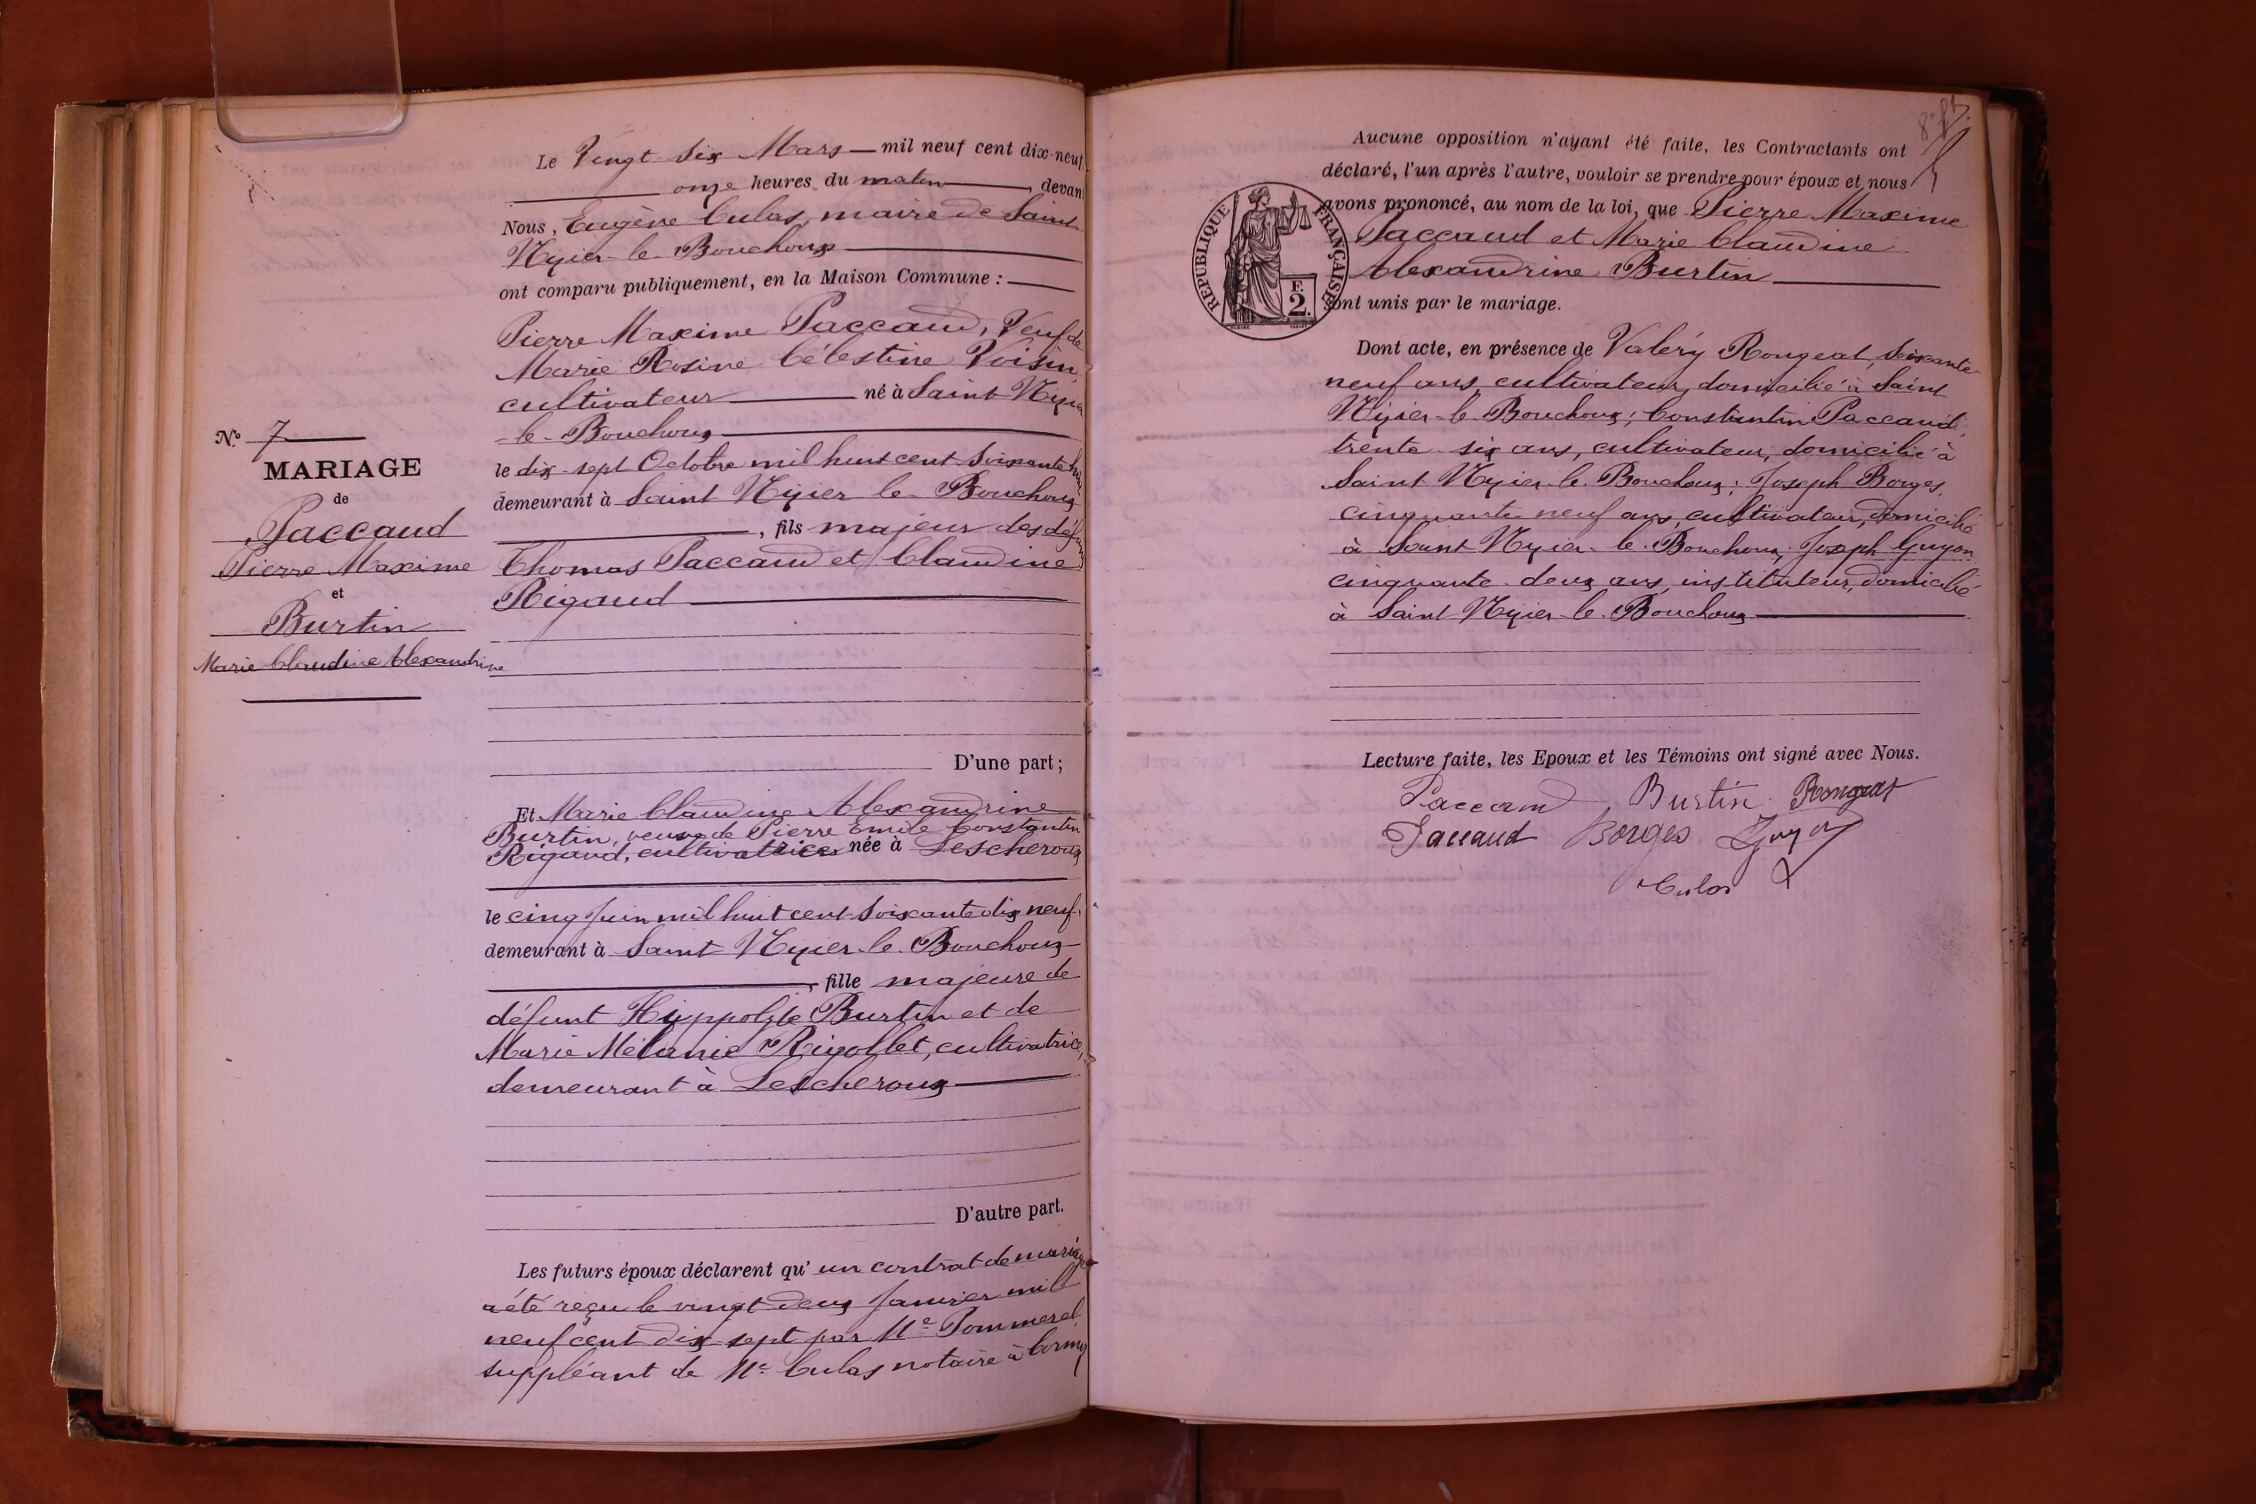 N.º 7
MARIAGE
de
Paccaud
Pierre Maxime
et
Burtin
Marie Claudine Alexandrine
Le Vingt-Six Mars — mil neuf cent dix-neuf
onze heures du matin, devan
Nous, Eugène Culas, maire de Saint
Nizier-le-Bouchoux
ont comparu publiquement, en la Maison Commune :
Pierre Maxime Paccaud, Veuf de
Marie Rosine Célestine Voisin,
cultivateur né à Saint Nizier
-le-Bouchoux
le dix-sept Octobre mil huit cent soixante
demeurant à Saint Nizier-le-Bouchoux
, fils majeur des défunts
Thomas Paccaud et Claudine
Rigaud
D'une part ;
Et Marie Claudine Alexandrine
Burtin, veuve de Pierre Emile Constantin
Rigaud, cultivatrice née à Lescheroux
le cinq Juin mil huit cent soixante dix neuf,
demeurant à Saint Nizier-le-Bouchoux
, fille majeure de
défunt Hyppolyte Burtin et de
Marie Mélanie Rigollet, cultivatrice,
demeurant à Lescheroux
D'autre part.
Les futurs époux déclarent qu' un contrat de mariage
a été reçu le vingt deux Janvier mil
neuf cent dix-sept par Me Pommerel
suppléant de Me Culas notaire à Cormoz
Aucune opposition n'ayant été faite, les Contractants ont
déclaré, l'un après l'autre, vouloir se prendre pour époux et nous
avons prononcé, au nom de la loi, que Pierre Maxime
Paccaud et Marie Claudine
Alexandrine Burtin
sont unis par le mariage.
RÉPUBLIQUE FRANÇAISE
F.
2.
Dont acte, en présence de Valéry Rongeat, soixante
neuf ans, cultivateur, domicilié à Saint
Nizier-le-Bouchoux ; Constantin Paccaud,
trente-six ans, cultivateur, domicilié à
Saint Nizier-le-Bouchoux ; Joseph Borges,
cinquante neuf ans, cultivateur, domicilié
à Saint Nizier-le-Bouchoux ; Joseph Guyon
cinquante-deux ans, instituteur, domicilié
à Saint Nizier-le-Bouchoux
Lecture faite, les Epoux et les Témoins ont signé avec Nous.
Paccaud Burtin Rongeat
Paccaud Borges Guyon
Culas